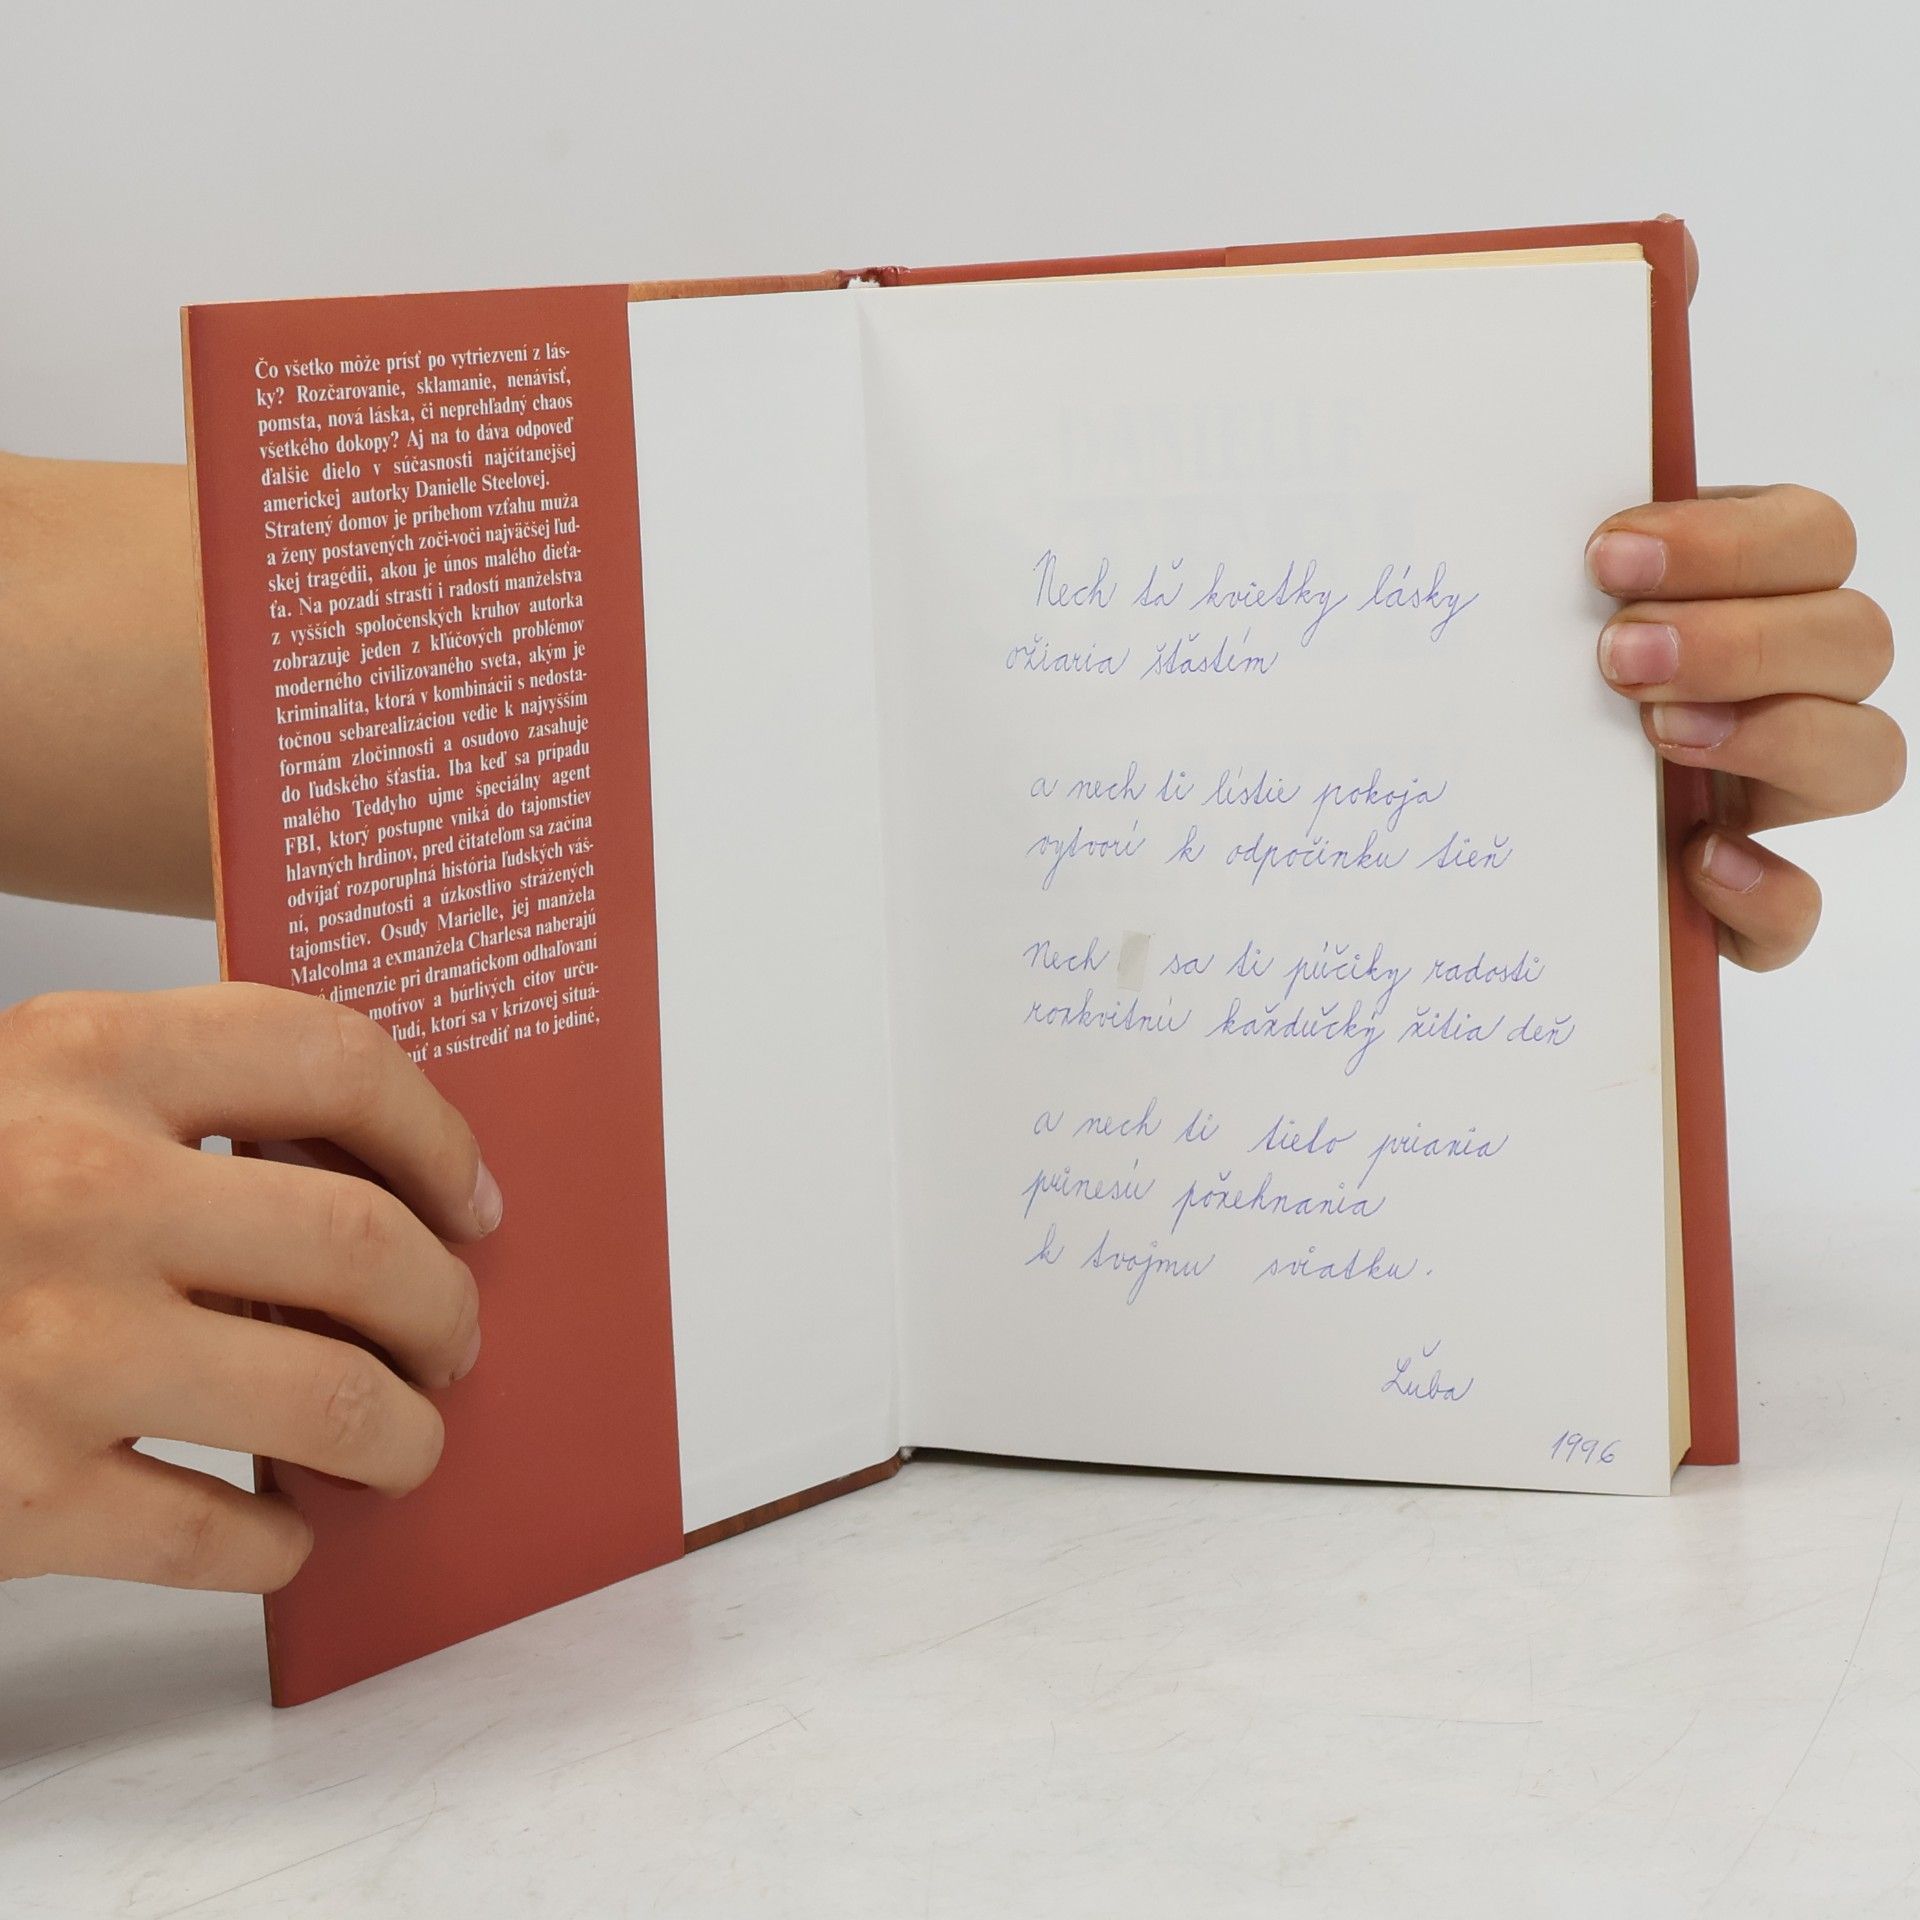 Čo všetko môže prísť po vytriezvení z lás-
ky? Rozčarovanie, sklamanie, nenávisť,
pomsta, nová láska, či neprehľadný chaos
všetkého dokopy? Aj na to dáva odpoveď
ďalšie dielo v súčasnosti najčítanejšej
americkej autorky Danielle Steelovej.
Stratený domov je príbehom vzťahu muža
a ženy postavených zoči-voči najväčšej ľud-
skej tragédii, akou je únos malého dieťa-
ťa. Na pozadí strastí i radostí manželstva
z vyšších spoločenských kruhov autorka
zobrazuje jeden z kľúčových problémov
moderného civilizovaného sveta, akým je
kriminalita, ktorá v kombinácii s nedosta-
točnou sebarealizáciou vedie k najvyšším
formám zločinnosti a osudovo zasahuje
do ľudského šťastia. Iba keď sa prípadu
malého Teddyho ujme špeciálny agent
FBI, ktorý postupne vniká do tajomstiev
hlavných hrdinov, pred čitateľom sa začína
odvíjať rozporuplná história ľudských váš-
ní, posadnutosti a úzkostlivo strážených
tajomstiev. Osudy Marielle, jej manžela
Malcolma a exmanžela Charlesa naberajú
dimenzie pri dramatickom odhaľovaní
motívov a búrlivých citov urču-
ľudí, ktorí sa v krízovej situá-
a sústrediť na to jediné,
Nech ťa kvietky lásky
ožiaria šťastím
a nech ti lístie pokoja
vytvorí k odpočinku tieň
Nech sa ti púčiky radosti
rozkvitnú každučký žitia deň
a nech ti tieto priania
prinesú požehnania
k tvojmu sviatku.
Ľuba
1996